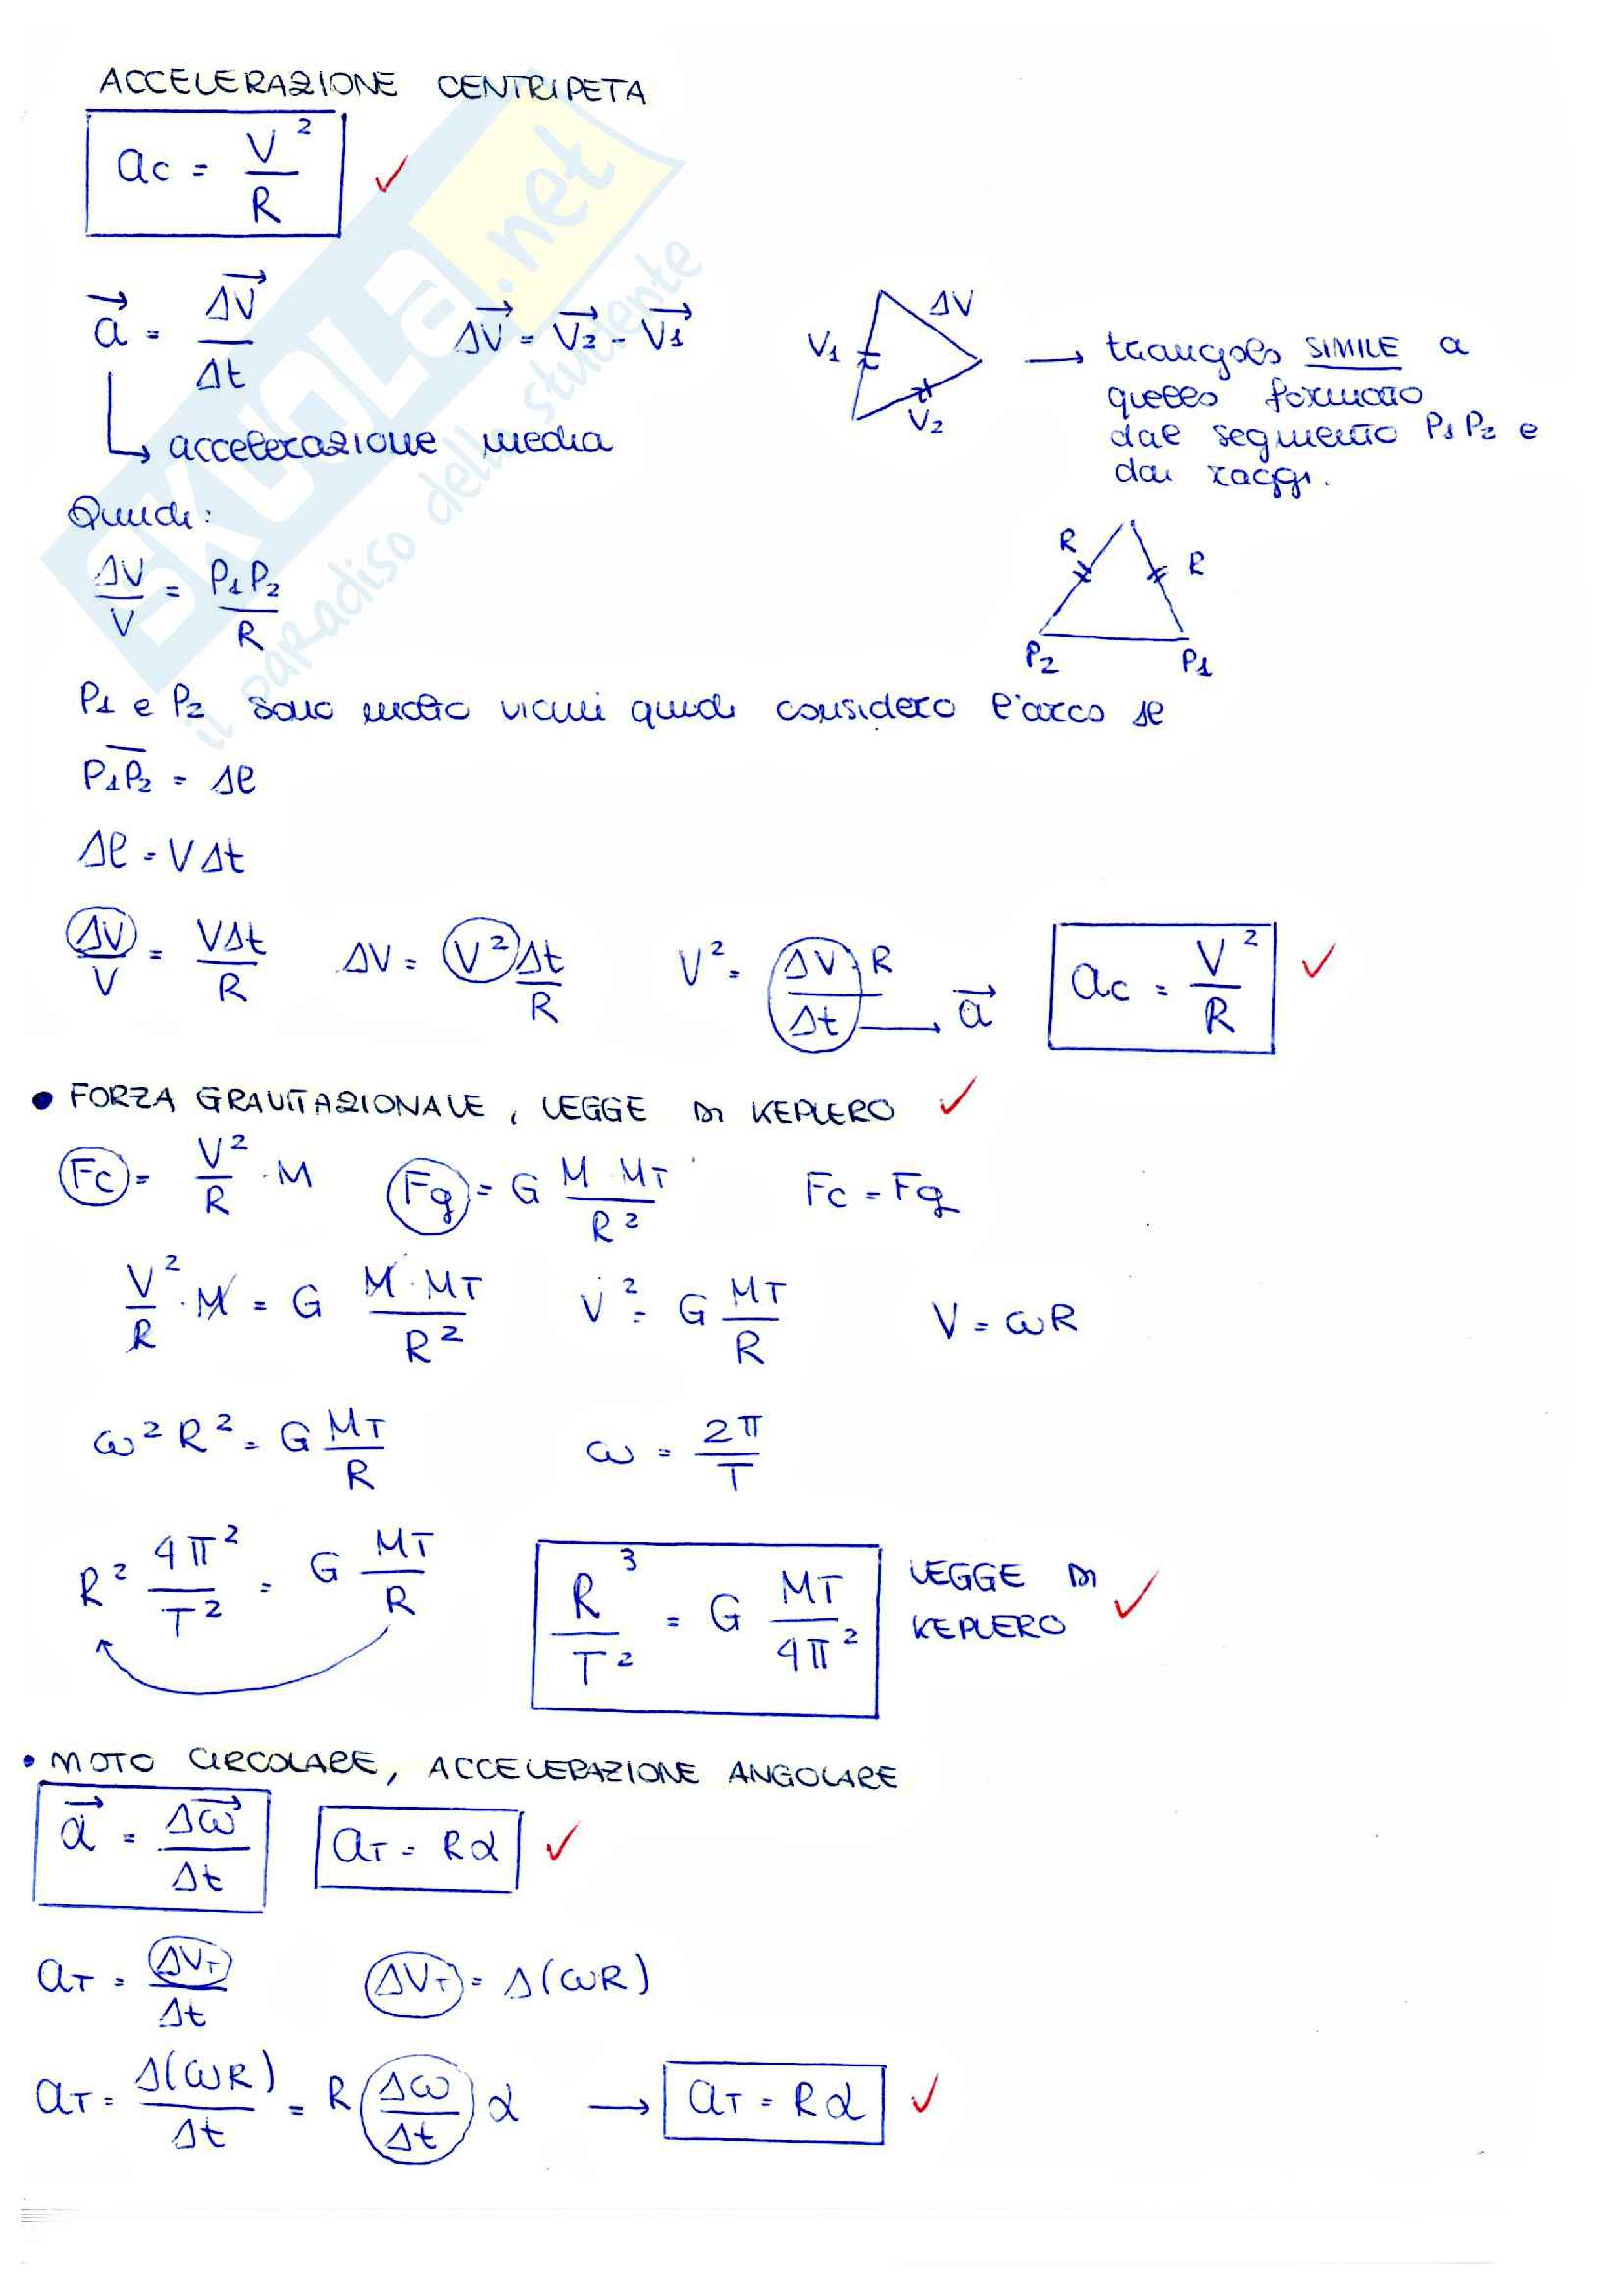 ACCELERAZIONE CENTRIPETA
ac = V²/R ✓
a⃗ = ΔV⃗/Δt ΔV⃗ = V⃗2 - V⃗1 V1 ΔV V2 → triangolo SIMILE a
quello formato
dal segmento P1 P2 e
dai raggi.
↳ accelerazione media
Quindi:
ΔV/V = P1P2/R
R R
P2 P1
P1 e P2 sono molto vicini quindi considero l'arco Δl
P1P2 = Δl
Δl = VΔt
ΔV/V = VΔt/R ΔV = V²Δt/R V² = ΔV·R/Δt → a⃗ ac = V²/R ✓
• FORZA GRAVITAZIONALE, LEGGE DI KEPLERO ✓
Fc = V²/R · M Fg = G M MT/R² Fc = Fg
V²/R · M = G M · MT/R² V² = G MT/R V = ωR
ω²R² = G MT/R ω = 2π/T
R² 4π²/T² = G MT/R R³/T² = G MT/4π² LEGGE DI
KEPLERO ✓
• MOTO CIRCOLARE, ACCELERAZIONE ANGOLARE
α⃗ = Δω⃗/Δt aT = Rα ✓
aT = ΔVT/Δt ΔVT = Δ(ωR)
aT = Δ(ωR)/Δt = R Δω/Δt α → aT = Rα ✓
SKUOLA.net
il paradiso dello studente